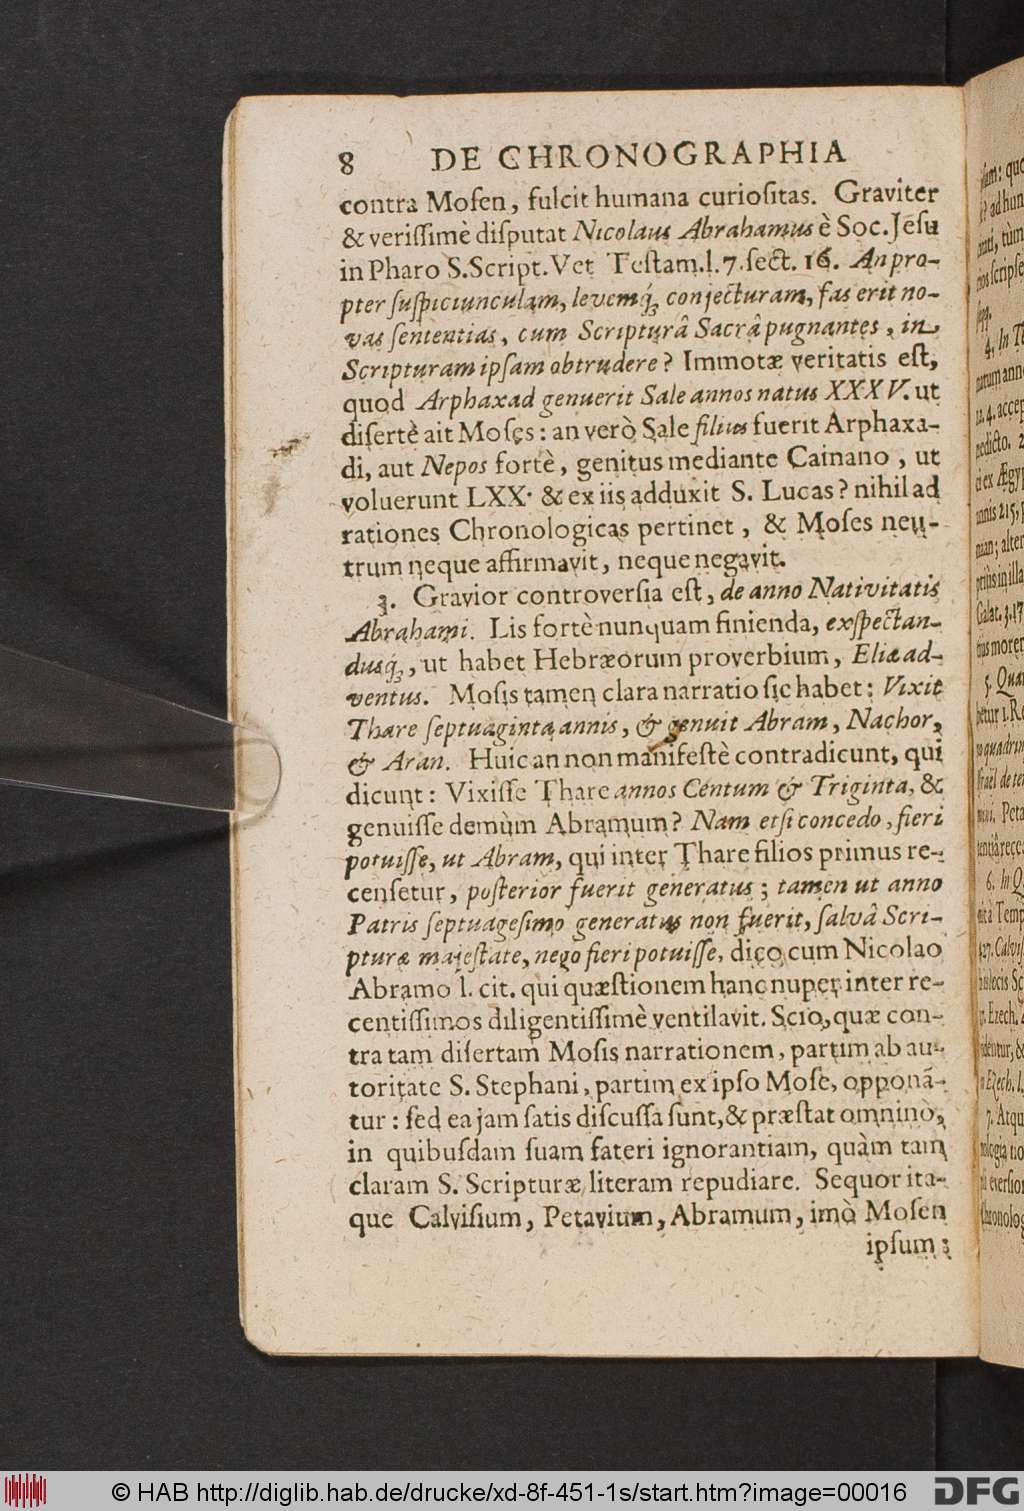 8 DE CHRONOGRAPHIA
contra Moſen, fulcit humana curioſitas. Graviter
& veriſſimè diſputat Nicolaus Abrahamus è Soc. Jeſu
in Pharo S. Script. Vet Teſtam. l. 7. ſect. 16. An pro-
pter ſuſpiciunculam, levemq́ꝫ conjecturam, fas erit no-
vas ſententias, cum Scripturâ Sacrâ pugnantes, in
Scripturam ipſam obtrudere? Immotæ veritatis eſt,
quod Arphaxad genuerit Sale annos natus XXXV. ut
diſertè ait Moſes: an verò Sale filius fuerit Arphaxa-
di, aut Nepos fortè, genitus mediante Cainano, ut
voluerunt LXX. & ex iis adduxit S. Lucas? nihil ad
rationes Chronologicas pertinet, & Moſes neu-
trum neque affirmavit, neque negavit.
3. Gravior controverſia eſt, de anno Nativitatis
Abrahami. Lis fortè nunquam finienda, exſpectan-
dusq́ꝫ, ut habet Hebræorum proverbium, Eliæ ad-
ventus. Moſis tamen clara narratio ſic habet: Vixit
Thare ſeptuaginta annis, & genuit Abram, Nachor,
& Aran. Huic an non manifeſtè contradicunt, qui
dicunt: Vixiſſe Thare annos Centum & Triginta, &
genuiſſe demùm Abramum? Nam etſi concedo, fieri
potuiſſe, ut Abram, qui inter Thare filios primus re-
cenſetur, poſterior fuerit generatus; tamen ut anno
Patris ſeptuageſimo generatus non fuerit, ſalvâ Scri-
pturæ majeſtate, nego fieri potuiſſe, dico cum Nicolao
Abramo l. cit. qui quæſtionem hanc nuper inter re-
centiſſimos diligentiſſimè ventilavit. Scio, quæ con-
tra tam diſertam Moſis narrationem, partim ab au-
toritate S. Stephani, partim ex ipſo Moſe, opponã-
tur: ſed ea jam ſatis diſcuſſa ſunt, & præſtat omninò,
in quibuſdam ſuam fateri ignorantiam, quàm tam
claram S. Scripturæ literam repudiare. Sequor ita-
que Calviſium, Petavium, Abramum, imò Moſen
ipſum;
© HAB http://diglib.hab.de/drucke/xd-8f-451-1s/start.htm?image=00016
DFG